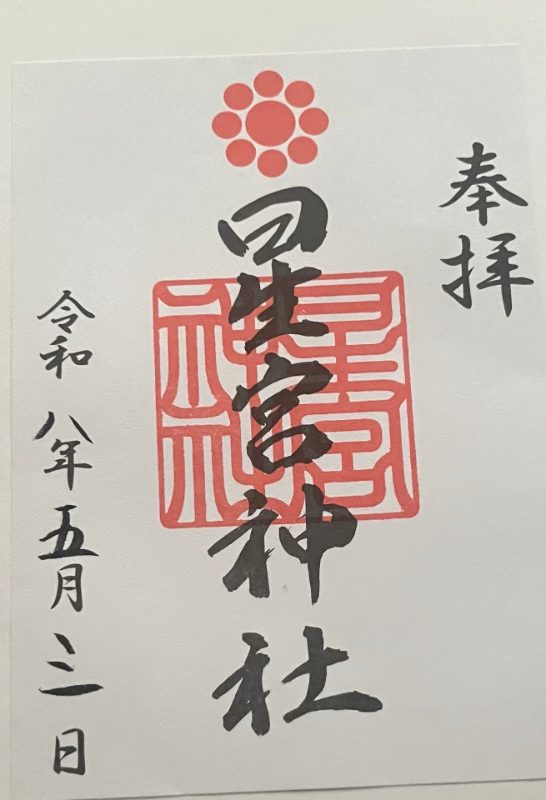 奉拝
星宮神社
令和八年五月三日
星宮神社